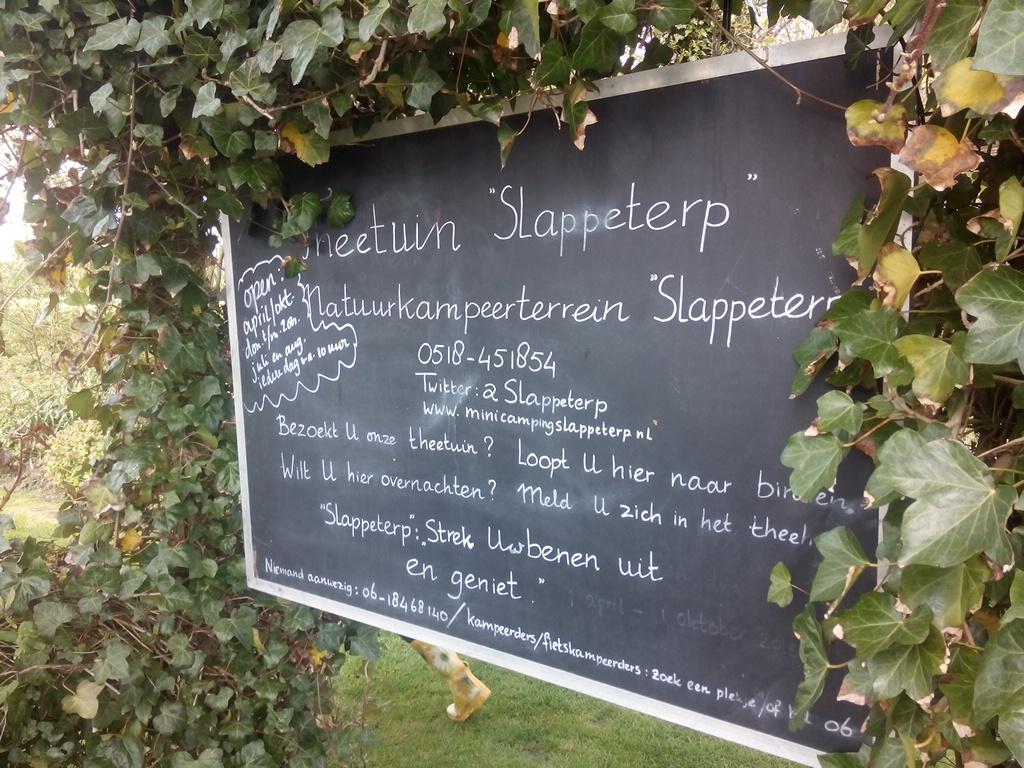 heetuin "Slappeterp"
open:
april/okt.
don. t/m zon.
juli en aug.
iedere dag v.a. 10 uur
Natuurkampeerterrein "Slappeterp
0518-451854
Twitter: @Slappeterp
www.minicampingslappeterp.nl
Bezoekt U onze theetuin? Loopt U hier naar binnen.
Wilt U hier overnachten? Meld U zich in het theeh
"Slappeterp": "Strek Uw benen uit
en geniet."
1 april - 1 oktober
Niemand aanwezig: 06-18468140/kampeerders/fietskampeerders: zoek een plekje/of bel 06